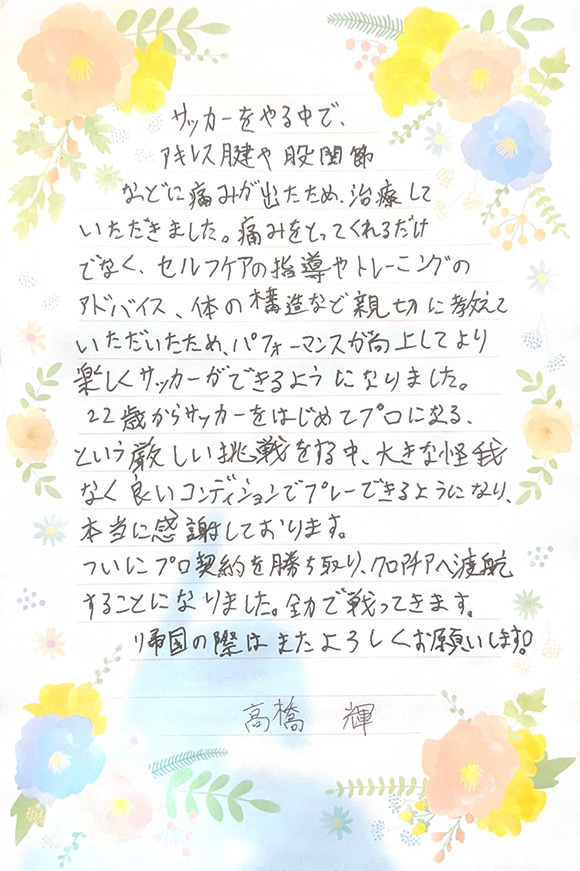 サッカーをやる中で、
アキレス腱や股関節
などに痛みが出たため、治療して
いただきました。痛みをとってくれるだけ
でなく、セルフケアの指導やトレーニングの
アドバイス、体の構造など親切に教えて
いただいたため、パフォーマンスが向上してより
楽しくサッカーができるようになりました。
22歳からサッカーをはじめてプロになる、
という厳しい挑戦をする中、大きな怪我
なく良いコンディションでプレーできるようになり、
本当に感謝しております。
ついにプロ契約を勝ち取り、クロアチアへ渡航
することになりました。全力で戦ってきます。
帰国の際はまたよろしくお願いします!
高橋 輝